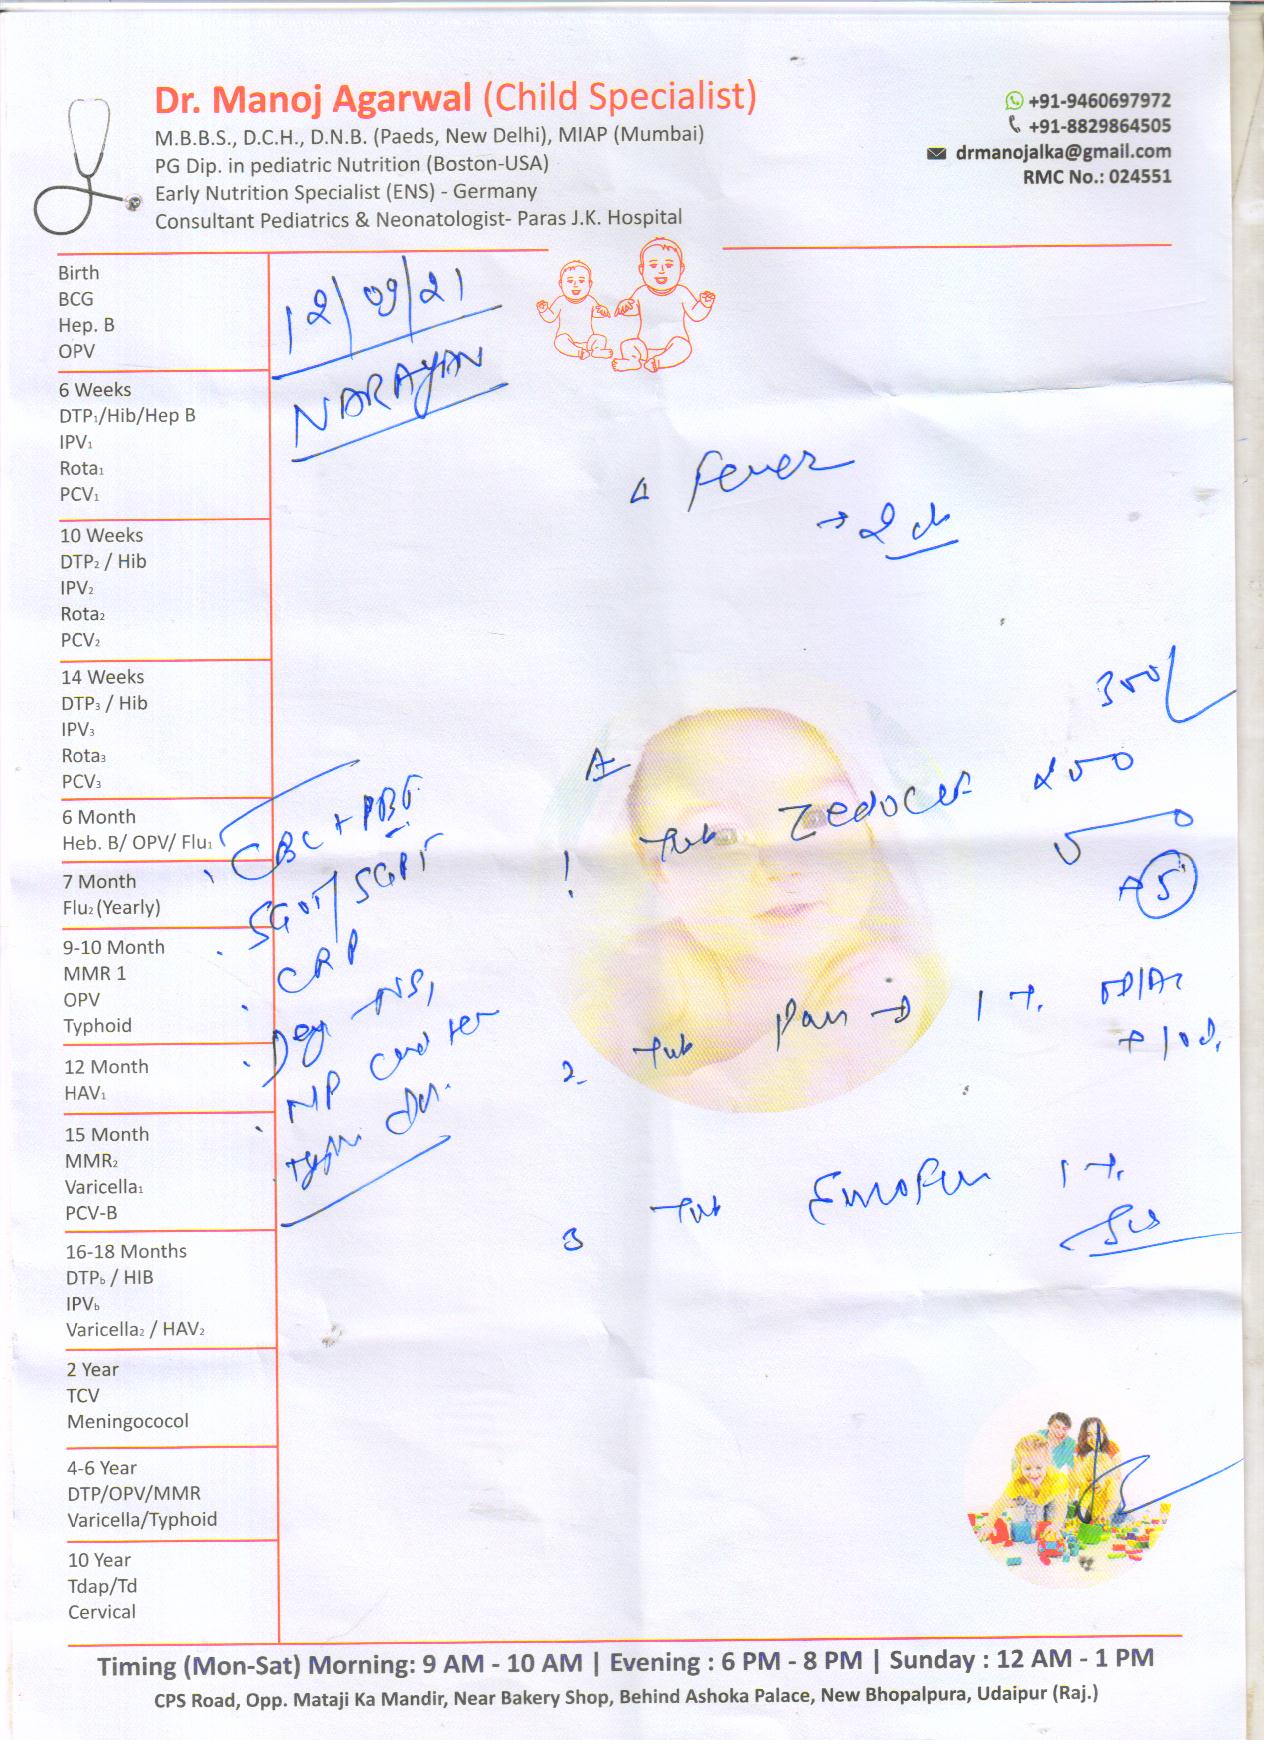 Dr. Manoj Agarwal (Child Specialist)
M.B.B.S., D.C.H., D.N.B. (Paeds, New Delhi), MIAP (Mumbai)
PG Dip. in pediatric Nutrition (Boston-USA)
Early Nutrition Specialist (ENS) - Germany
Consultant Pediatrics & Neonatologist- Paras J.K. Hospital
+91-9460697972
+91-8829864505
drmanojalka@gmail.com
RMC No.: 024551
Birth
BCG
Hep. B
OPV
6 Weeks
DTP1/Hib/Hep B
IPV1
Rota1
PCV1
10 Weeks
DTP2 / Hib
IPV2
Rota2
PCV2
14 Weeks
DTP3 / Hib
IPV3
Rota3
PCV3
6 Month
Heb. B/ OPV/ Flu1
7 Month
Flu2 (Yearly)
9-10 Month
MMR 1
OPV
Typhoid
12 Month
HAV1
15 Month
MMR2
Varicella1
PCV-B
16-18 Months
DTPb / HIB
IPVb
Varicella2 / HAV2
2 Year
TCV
Meningococol
4-6 Year
DTP/OPV/MMR
Varicella/Typhoid
10 Year
Tdap/Td
Cervical
12/09/21
NARAYAN
Fever
→ 2 d
300/
CBC + PBF
SGOT/SGPT
CRP
NS1
MP
1 Tab
5
2 Tab Pan → D 1 T.
3 Tab 1 T.
Timing (Mon-Sat) Morning: 9 AM - 10 AM | Evening : 6 PM - 8 PM | Sunday : 12 AM - 1 PM
CPS Road, Opp. Mataji Ka Mandir, Near Bakery Shop, Behind Ashoka Palace, New Bhopalpura, Udaipur (Raj.)